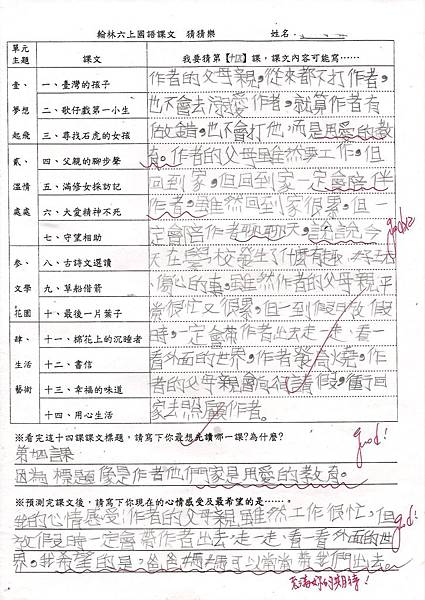 翰林六上國語課文 猜猜樂 姓名:
單元主題 課文 我要猜第【十四】課,課文內容可能寫……
壹、夢想起飛
一、臺灣的孩子
二、歌仔戲第一小生
三、尋找石虎的女孩
貳、溫情處處
四、父親的腳步聲
五、滿修女採訪記
六、大愛精神不死
七、守望相助
參、文學花園
八、古詩文選讀
九、草船借箭
十、最後一片葉子
肆、生活藝術
十一、棉花上的沉睡者
十二、書信
十三、幸福的味道
十四、用心生活
作者的父母親,從來都不打作者,
也不會去溺愛作者,就算作者有
做錯,也不會打他,而是用愛的教
育。作者的父母雖然要工作,但
回到家,但回到家一定會陪伴
作者,雖然回到家很累,但一
定會陪作者聊聊天,說說今
天在學校發生了什麼有趣、好
、傷心的事,雖然作者的父母親平
常很忙又很累,但一到假日放假
時,一定會帶作者出去走一走、看一
看外面的世界,作者
者的父母親會向 請假,
家去照顧作者。
good
※看完這十四課課文標題,請寫下你最想先讀哪一課?為什麼?
good!
第十四課
因為標題像是作者他們家是用愛的教育。
※預測完課文後,請寫下你現在的心情感受及最希望的是……。
我的心情感受:作者的父母親雖然工作很忙,但
放假時一定會帶作者出去走一走、看一看外面的世
界。我希望的是,爸爸媽媽可以常常帶我們出去。
good!
充滿妳的期待!